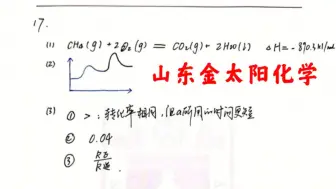 17.
(1) CH4(g) + 2O2(g) = CO2(g) + 2H2O(l) ΔH = -890.3 kJ/mol
(2)
山东金太阳化学
(3) ① >；转化率相同，但a所用的时间更短
② 0.04
③ k正/k逆